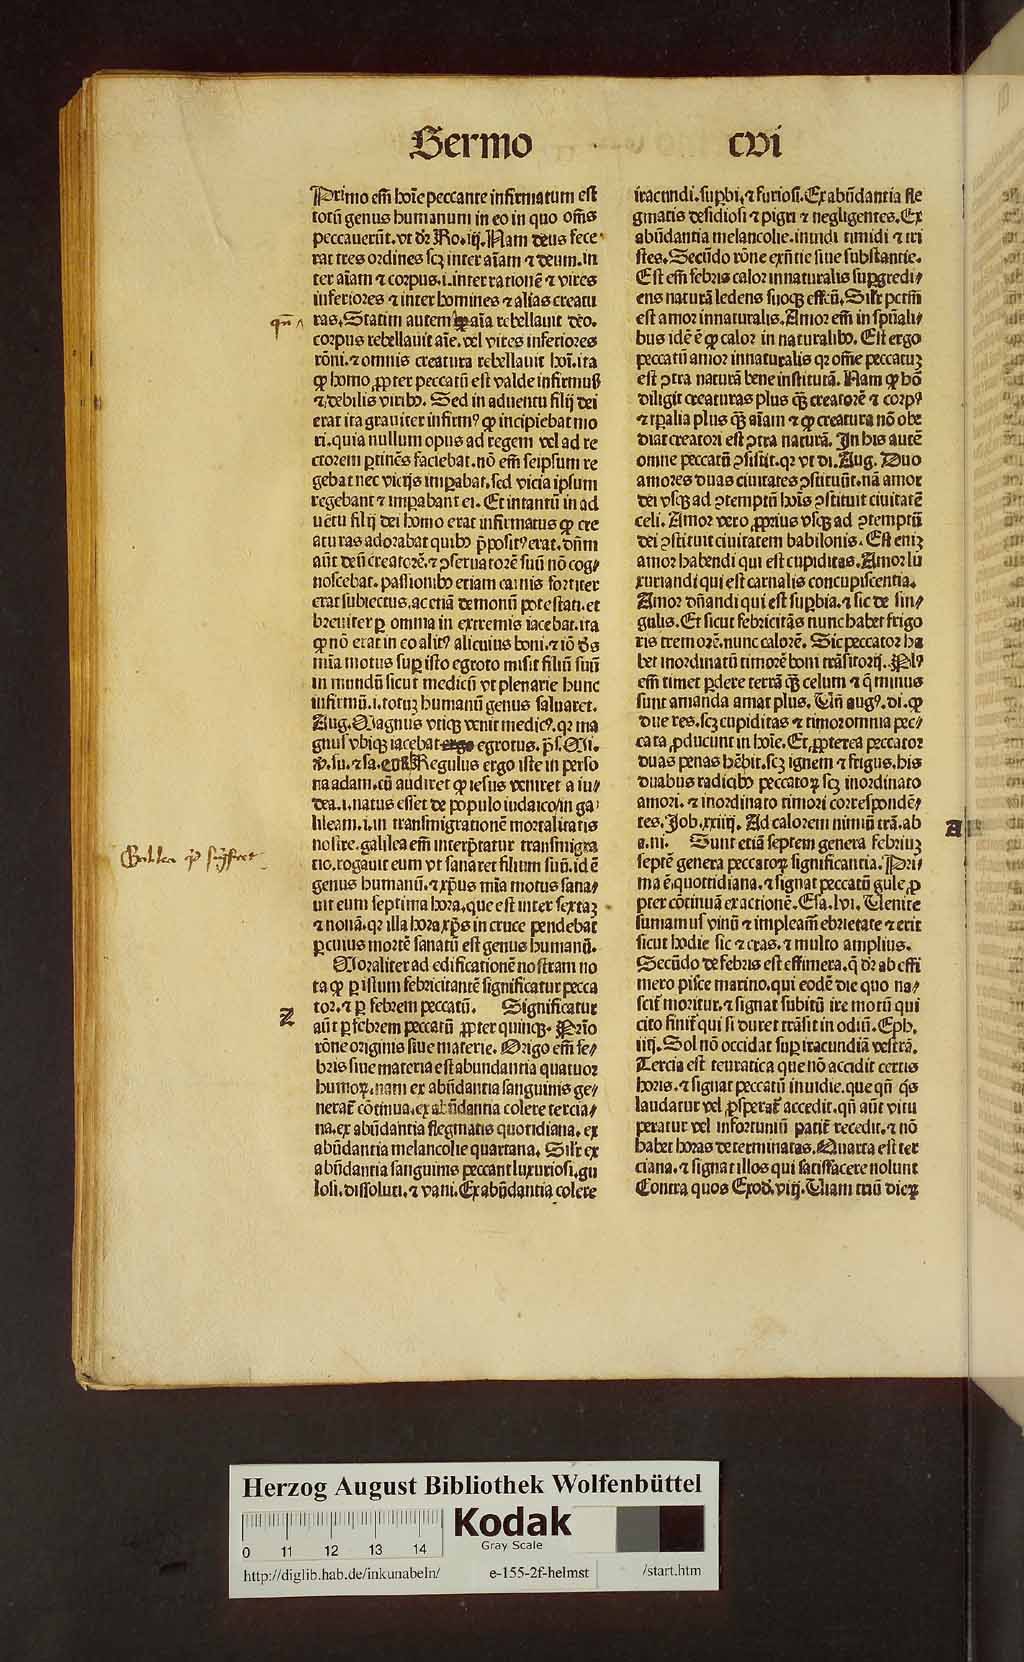 Sermo cvi
Primo em̄ hoīe peccante infirmatum est
totū genus humanum in eo in quo om̄s
peccauerūt. vt dr̄ Ro. iij. Nam deus fece
rat tres ordines scꝫ inter aīam ⁊ deum. in
ter aīam ⁊ corpus. i. inter rationē ⁊ vires
inferiores ⁊ inter homines ⁊ alias creatu
qn̄
ras. Statim autem aīa rebellauit deo.
corpus rebellauit aīe. vel vires inferiores
rōni. ⁊ omnis creatura rebellauit hoī. ita
ꝙ homo ꝓpter peccatū est valde infirmus
⁊ debilis viribꝰ. Sed in aduentu filij dei
erat ita grauiter infirmꝰ ꝙ incipiebat mo
ri. quia nullum opus ad regem vel ad re
ctorem ꝑtinēs faciebat. nō em̄ seipsum re
gebat nec vicijs imꝑabat. sed vicia ipsum
regebant ⁊ imꝑabant ei. Et intantū in ad
uētu filij dei homo erat infirmatus ꝙ cre
aturas adorabat quibꝰ p̄positꝰ erat. dn̄m
aūt deū creatorē. ⁊ ↄseruatorē suū nō cog⸗
noscebat. passionibꝰ etiam carnis fortiter
erat subiectus. ac etiā demonū potestati. et
breuiter ꝑ omnia in extremis iacebat. ita
ꝙ nō erat in eo alitꝰ alicuius boni. ⁊ iō ds̄
mīa motus suꝑ isto egroto misit filiū suū
in mundū sicut medicū vt plenarie hunc
infirmū. i. totuꝫ humanū genus saluaret.
Aug. Magnus vtiqꝫ venit medicꝰ. qꝛ ma
gnus vbiqꝫ iacebat ergo egrotus. p̄s. Mi.
Regulus ergo iste in perso
na adam. cū audiret ꝙ iesus veniret a iu⸗
dea. i. natus esset de populo iudaico in ga
lileam. i. in transmigrationē mortalitatis
nostre. galilea em̄ interp̄tatur transmigra
tio. rogauit eum vt sanaret filium suū. id ē
genus humanū. ⁊ xp̄us mīa motus sana⸗
uit eum septima hora. que est inter sextaꝫ
⁊ nonā. qꝛ illa hora xp̄s in cruce pendebat
ꝑ cuius mortē sanatū est genus humanū.
Moraliter ad edificationē nostram no
ta ꝙ ꝑ istum febricitantē significatur pecca
Z
tor. ⁊ ꝑ febrem peccatū. Significatur
aūt ꝑ febrem peccatū ꝓpter quinqꝫ. Prīo
rōne originis siue materie. Origo em̄ fe⸗
bris siue materia est abundantia quatuor
humoꝝ. nam ex abūdantia sanguinis ge⸗
nerat̄ cōtinua. ex abūdantia colere tercia⸗
na. ex abūdantia flegmatis quotidiana. ex
abūdantia melancolie quartana. Silr̄ ex
abūdantia sanguinis peccant luxuriosi. gu
losi. dissoluti. ⁊ vani. Ex abūdantia colere
iracundi. suꝑbi. ⁊ furiosi. Ex abūdantia fle
gmatis desidiosi ⁊ pigri ⁊ negligentes. Ex
abūdantia melancolie. inuidi timidi ⁊ tri
stes. Secūdo rōne exn̄tie siue substantie.
Est em̄ febris calor innaturalis suꝑgredi⸗
ens naturā ledens sijoqꝫ effcū. Silr̄ pctm̄
est amor innaturalis. Amor em̄ in spūali⸗
bus idē ē ꝙ calor in naturalibꝰ. Est ergo
peccatū amor innaturalis qꝛ om̄e peccatuꝫ
est ↄtra naturā bene institutā. Nam ꝙ hō
diligit creaturas plus qꝫ̄ creatorē ⁊ corpꝰ
⁊ tꝑalia plus qꝫ̄ aīam ⁊ ꝙ creatura nō obe
diat creatori est ↄtra naturā. In his autē
omne peccatū ↄsistit. qꝛ vt di. Aug. Duo
amores duas ciuitates ↄstituūt. nā amor
dei vsqꝫ ad ↄtemptū hoīs ↄstituit ciuitatē
celi. Amor vero ꝓprius vsqꝫ ad ↄtemptū
dei ↄstituit ciuitatem babilonis. Est eniꝫ
amor habendi qui est cupiditas. Amor lu
xuriandi qui est carnalis concupiscentia.
Amor dn̄andi qui est suꝑbia. ⁊ sic de sin⸗
gulis. Et sicut febricitās nunc habet frigo
ris tremorē. nunc calorē. Sic peccator ha
bet inordinatū timorē boni trāsitorij. Plꝰ
em̄ timet ꝑdere terrā qꝫ̄ celum ⁊ q̄ minus
sunt amanda amat plus. Vn̄ augꝰ. di. ꝙ
due res. scꝫ cupiditas ⁊ timor omnia pec⸗
cata ꝓducunt in hoīe. Et ꝓpterea peccator
duas penas hēbit. scꝫ ignem ⁊ frigus. his
duabus radicibꝰ peccatoꝝ scꝫ inordinato
amori. ⁊ inordinato timori correspondē⸗
tes. Job. xxiiij. Ad calorem nimiū trā. ab
A
a. ni. Sunt etiā septem genera febriuꝫ
septē genera peccatoꝝ significantia. Pri⸗
ma ē quottidiana. ⁊ signat peccatū gule. ꝓ
pter cōtinuā exactionē. Esa. lvi. Venite
sumamus vinū ⁊ impleam̄ ebrietate ⁊ erit
sicut hodie sic ⁊ cras. ⁊ multo amplius.
Secūdo de febris est effimera. q̄ dr̄ ab effi
mero pisce marino. qui eodē die quo na⸗
scit̄ moritur. ⁊ signat subitū ire motū qui
cito finit̄ qui si duret trāsit in odiū. Eph.
iiij. Sol nō occidat suꝑ iracundiā vestrā.
Tercia est teuratica que nō accidit certis
horis. ⁊ signat peccatū inuidie. que qn̄ q̇s
laudatur vel ꝓsperat̄ accedit. qn̄ aūt vitu
peratur vel infortuniū patit̄ recedit. ⁊ nō
habet horas determinatas. Quarta est ter
ciana. ⁊ signat illos qui satisfacere nolunt
Contra quos Exod. viij. Viam triū dieꝝ
Herzog August Bibliothek Wolfenbüttel
Kodak
Gray Scale
0 11 12 13 14
http://diglib.hab.de/inkunabeln/ e-155-2f-helmst /start.htm